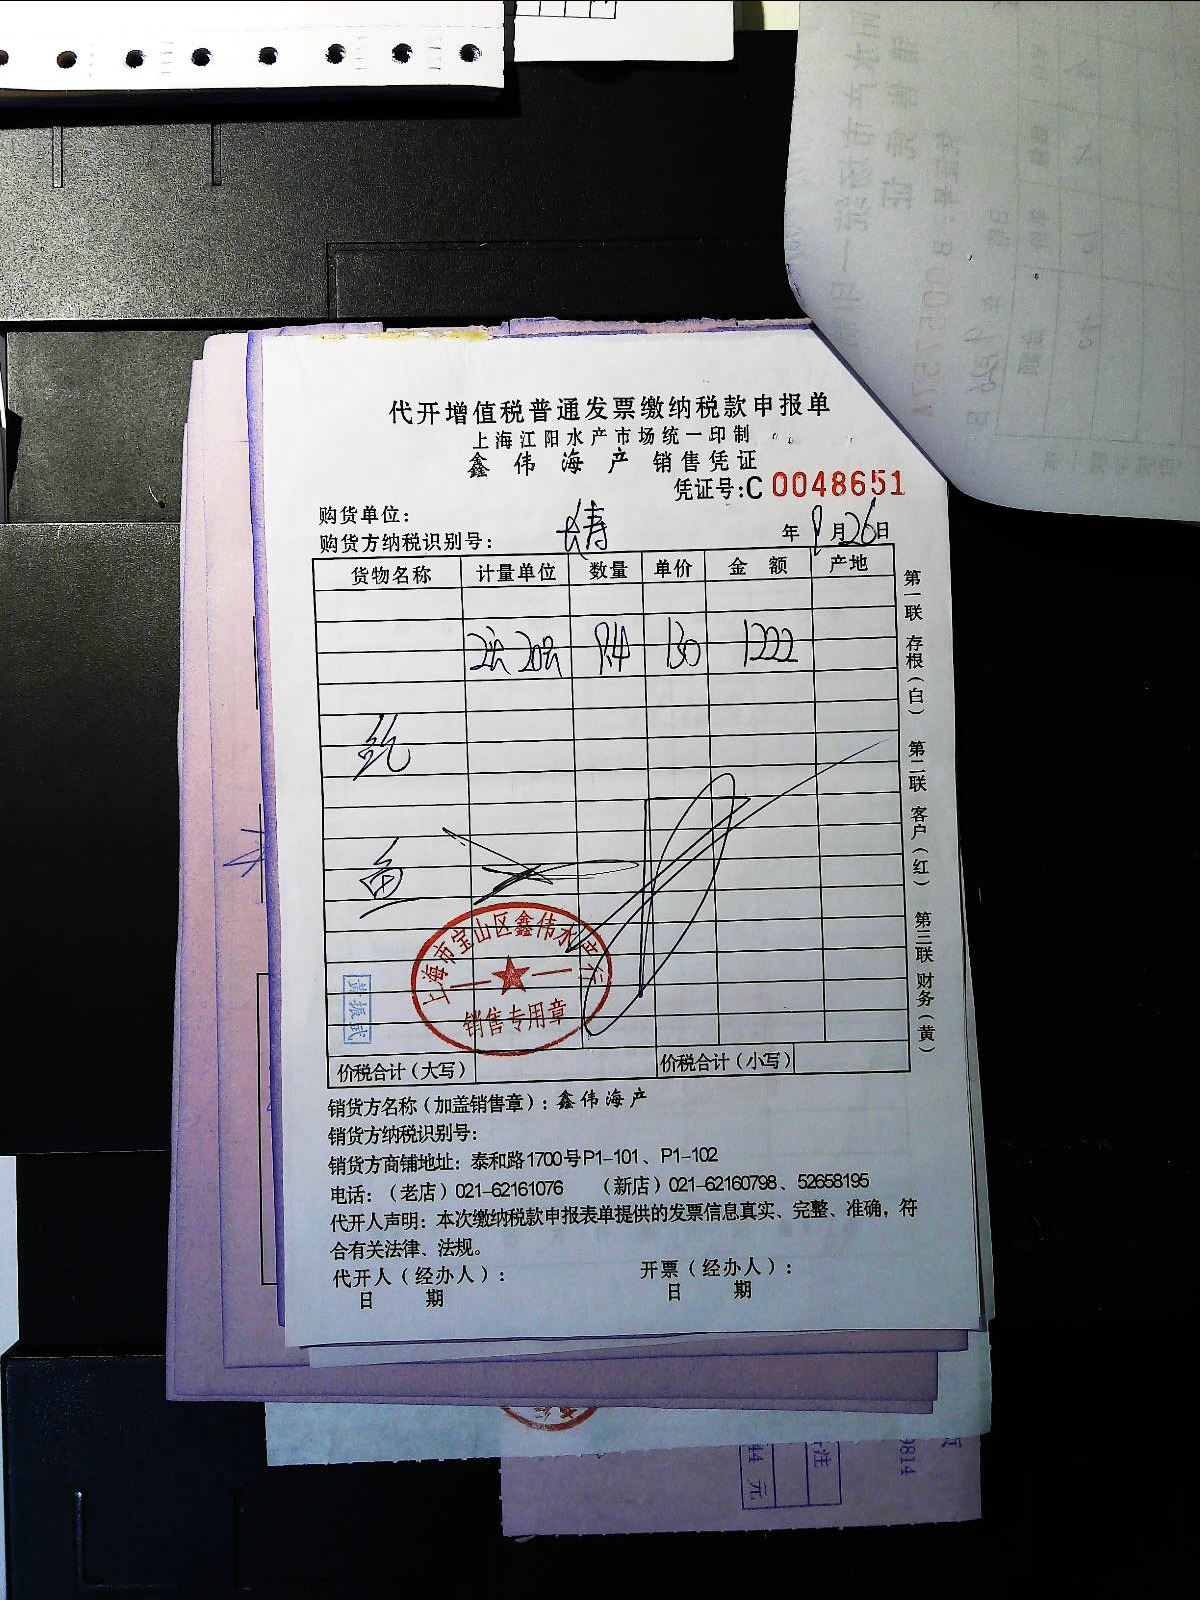 代开增值税普通发票缴纳税款申报单
上海江阳水产市场统一印制
鑫伟海产 销售凭证
凭证号:C 0048651
购货单位:
购货方纳税识别号: 年 月26日
货物名称 计量单位 数量 单价 金额 产地
130 1222
鱼
上海市宝山区鑫伟水产行
销售专用章
黄振武
价税合计(大写) 价税合计(小写)
销货方名称(加盖销售章):鑫伟海产
销货方纳税识别号:
销货方商铺地址:泰和路1700号P1-101、P1-102
电话:(老店)021-62161076 (新店)021-62160798、52658195
代开人声明:本次缴纳税款申报表单提供的发票信息真实、完整、准确,符
合有关法律、法规。
代开人(经办人): 开票(经办人):
日 期 日 期
第一联 存根(白) 第二联 客户(红) 第三联 财务(黄)
9814
44 元